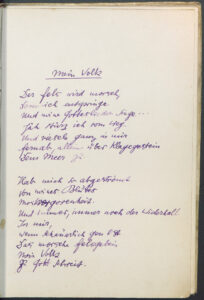 Mein Volk
Der Fels wird morsch,
Dem ich entspringe
Und meine Gotteslieder singe...
Jäh stürz ich vom Weg
Und riesele ganz in mir
fernab, allein über Klagegestein
Dem Meer zu
Hab mich so abgeströmt
Von meines Blutes
Mostvergorenheit
Und immer, immer noch der Widerhall
In mir,
wenn schauerlich gen Ost
Das morsche Felsgebein
Mein Volk
Zu Gott schreit.